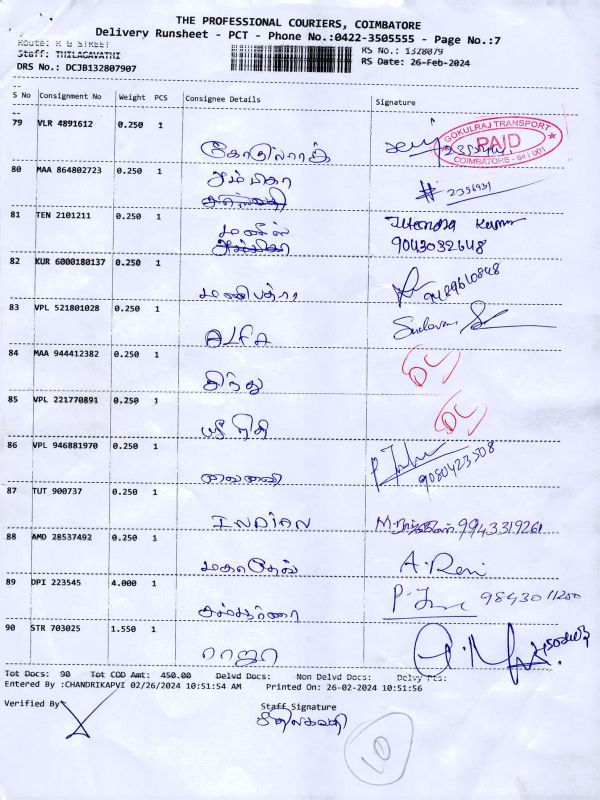 THE PROFESSIONAL COURIERS, COIMBATORE
Delivery Runsheet - PCT - Phone No.:0422-3505555 - Page No.:7
Route: R G STREET
Staff: THILAGAVATHI
RS No.: 1328079
DRS No.: DCJB132807907
RS Date: 26-Feb-2024
S No Consignment No Weight PCS Consignee Details Signature
79 VLR 4891612 0.250 1
GOKULRAJ TRANSPORT
PAID
COIMBATORE - 641 001
கோகுல்ராஜ்
80 MAA 864802723 0.250 1
அம்பிகா
# 2356931
81 TEN 2101211 0.250 1
Jitendra Kumar
மனிஷ்
9043032648
82 KUR 6000180137 0.250 1
மணிபத்ரா
9489610848
83 VPL 521801028 0.250 1
ALFA
84 MAA 944412382 0.250 1
DC
இந்து
85 VPL 221770891 0.250 1
DC
ஸ்ரீ
86 VPL 946881970 0.250 1
9080423508
87 TUT 900737 0.250 1
INDIAN
9943319261
88 AMD 28537492 0.250 1
மகாதேவ்
A. Rani
89 DPI 223545 4.000 1
P. 9843011200
90 STR 703025 1.550 1
ராஜா
Tot Docs: 90 Tot COD Amt: 450.00 Delvd Docs: Non Delvd Docs: Delvy Pts:
Entered By :CHANDRIKAPVI 02/26/2024 10:51:54 AM Printed On: 26-02-2024 10:51:56
Verified By
Staff Signature
10